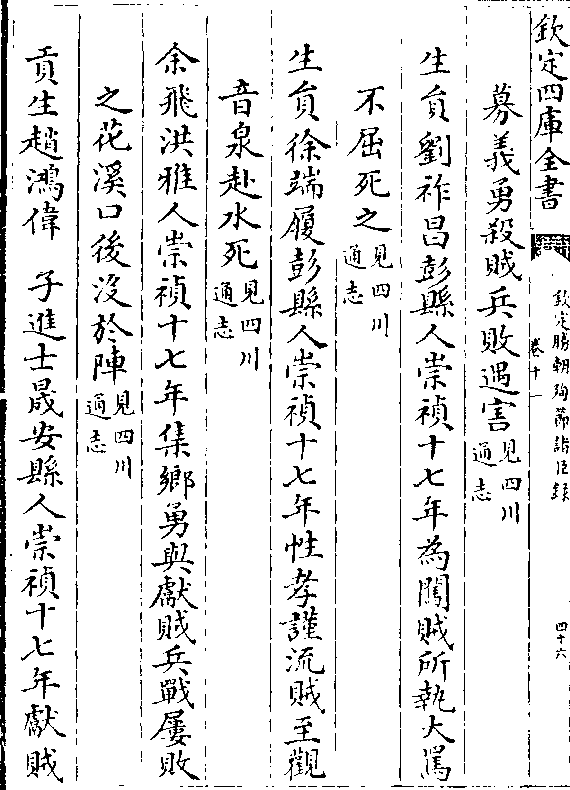 欽定四庫全書
欽定勝朝殉節諸臣錄
卷十一
四十六
募義勇殺賊兵敗遇害見四川通志
生員劉祚昌彭縣人崇禎十七年為闖賊所執大罵
不屈死之見四川通志
生員徐端履彭縣人崇禎十七年性孝謹流賊至觀
音泉赴水死見四川通志
余飛洪雅人崇禎十七年集鄉勇與獻賊兵戰屢敗
之花溪口後沒於陣見四川通志
貢生趙鴻偉 子進士晟安縣人崇禎十七年獻賊